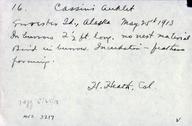 16. Cassin's Auklet
Forrester Id., Alaska May 25th 1913
In burrow 2 1/2 ft. long, no nest material
Bird in burrow. Incubation - feathers
forming.
H. Heath, Col.
MVZ 3259